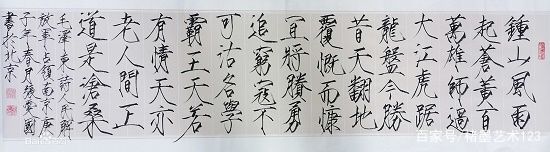 鍾山風雨
起蒼黃百
萬雄師過
大江虎踞
龍盤今勝
昔天翻地
覆慨而慷
宜將勝勇
追窮寇不
可沽名學
霸王天若
有情天亦
老人間正
道是滄桑
毛澤東詩人民解
放軍占領南京庚
子年春月
書於北京
百家号/楮墨艺术123